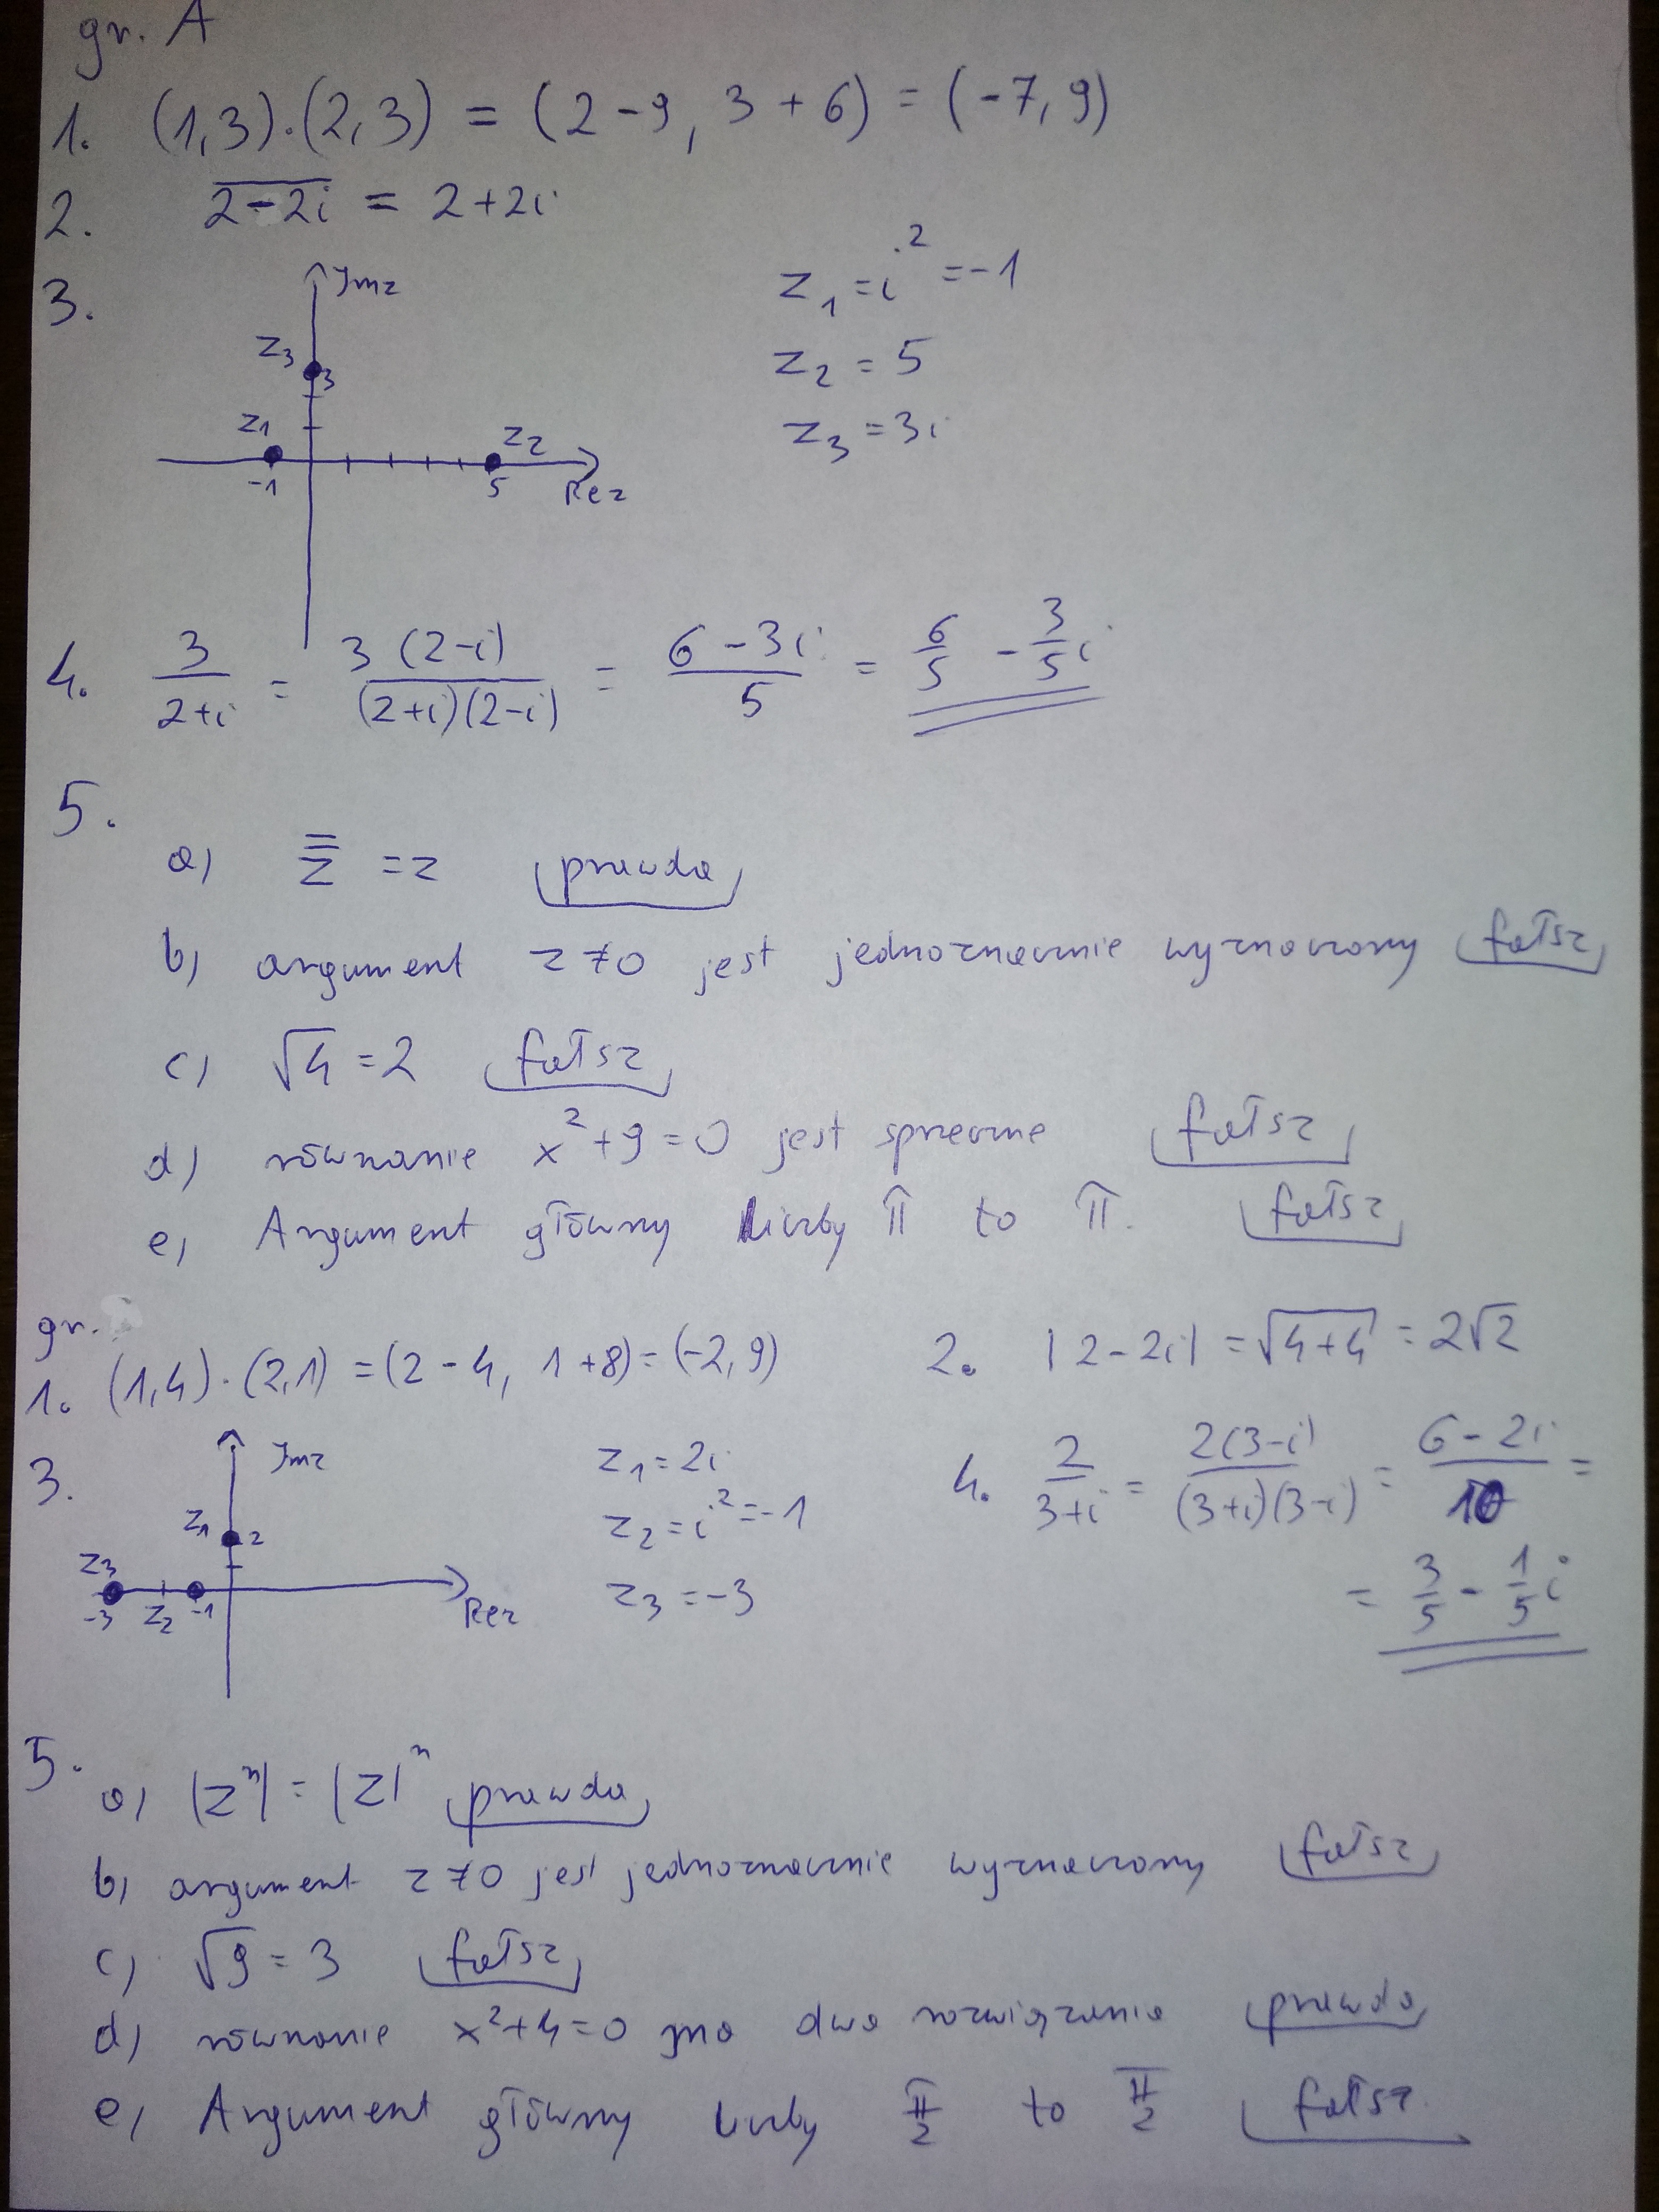 gr. A
1. (1,3)·(2,3) = (2-9, 3+6) = (-7, 9)
2. \overline{2-2i} = 2+2i
3. Im z
z₁ = i² = -1
z₂ = 5
z₃ = 3i
z₃ 3
z₁ z₂
-1 5 Re z
4. 3/(2+i) = 3(2-i)/((2+i)(2-i)) = (6-3i)/5 = 6/5 - 3/5 i
5.
a) \overline{\overline{z}} = z prawda
b) argument z≠0 jest jednoznacznie wyznaczony fałsz
c) √4 = 2 fałsz
d) równanie x²+9=0 jest sprzeczne fałsz
e) Argument główny liczby π to π. fałsz
gr.
1. (1,4)·(2,1) = (2-4, 1+8) = (-2, 9)
2. |2-2i| = √(4+4) = 2√2
3. Im z
z₁ = 2i
z₂ = i² = -1
z₃ = -3
z₁ 2
z₃
-3 z₂ -1 Re z
4. 2/(3+i) = 2(3-i)/((3+i)(3-i)) = (6-2i)/10 =
= 3/5 - 1/5 i
5.
a) |zⁿ| = |z|ⁿ prawda
b) argument z≠0 jest jednoznacznie wyznaczony fałsz
c) √9 = 3 fałsz
d) równanie x²+4=0 ma dwa rozwiązania prawda
e) Argument główny liczby π/2 to π/2 fałsz